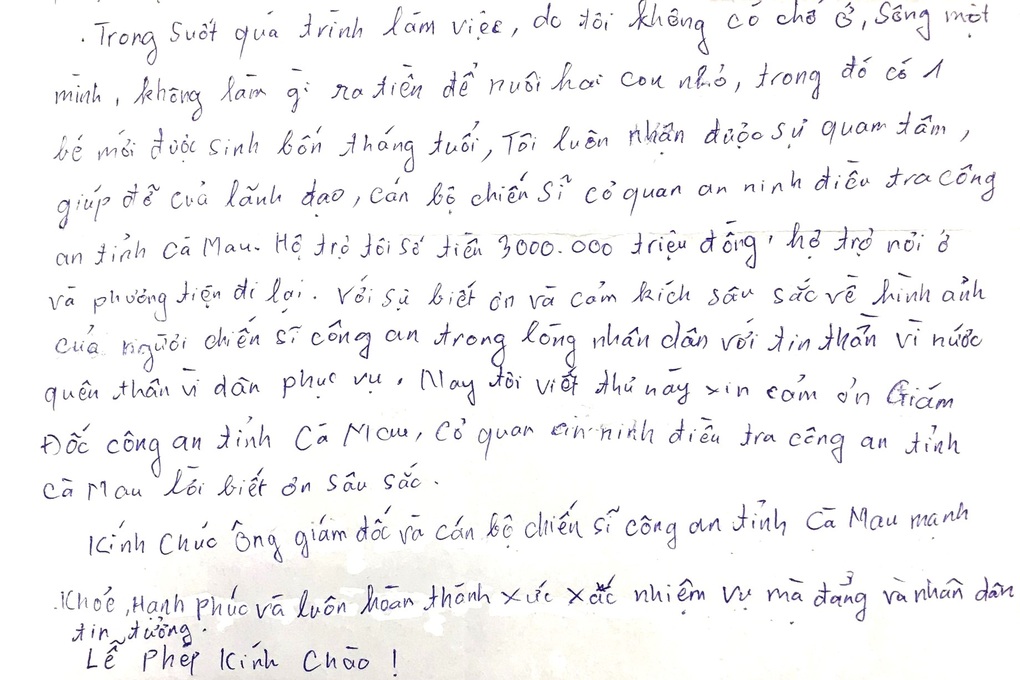 . Trong suốt quá trình làm việc, do tôi không có chổ ở, Sống một
mình, không làm gì ra tiền để nuôi hai con nhỏ, trong đó có 1
bé mới được sinh bốn tháng tuổi, Tôi luôn nhận được sự quam tâm,
giúp đở của lãnh đạo, cán bộ chiến sĩ cơ quan an ninh điều tra công
an tỉnh Cà Mau. Hộ trợ tôi số tiền 3000.000 triệu đồng, hộ trợ nơi ở
và phương tiện đi lại. Với sự biết ơn và cảm kích sâu sắc về hình ảnh
của người chiến sĩ công an trong lòng nhân dân với tin thần vì nước
quên thân vì dân phục vụ. Nay tôi viết thư này xin cảm ơn Giám
Đốc công an tỉnh Cà Mau, Cơ quan an ninh điều tra công an tỉnh
Cà Mau lời biết ơn sâu sắc.
Kính Chúc Ông giám đốc và cán bộ chiến sĩ công an tỉnh Cà Mau mạnh
Khỏe, Hạnh phúc và luôn hoàn thành xức xắc nhiệm vụ mà đảng và nhân dân
tin tưởng.
Lễ Phép Kính Chào !